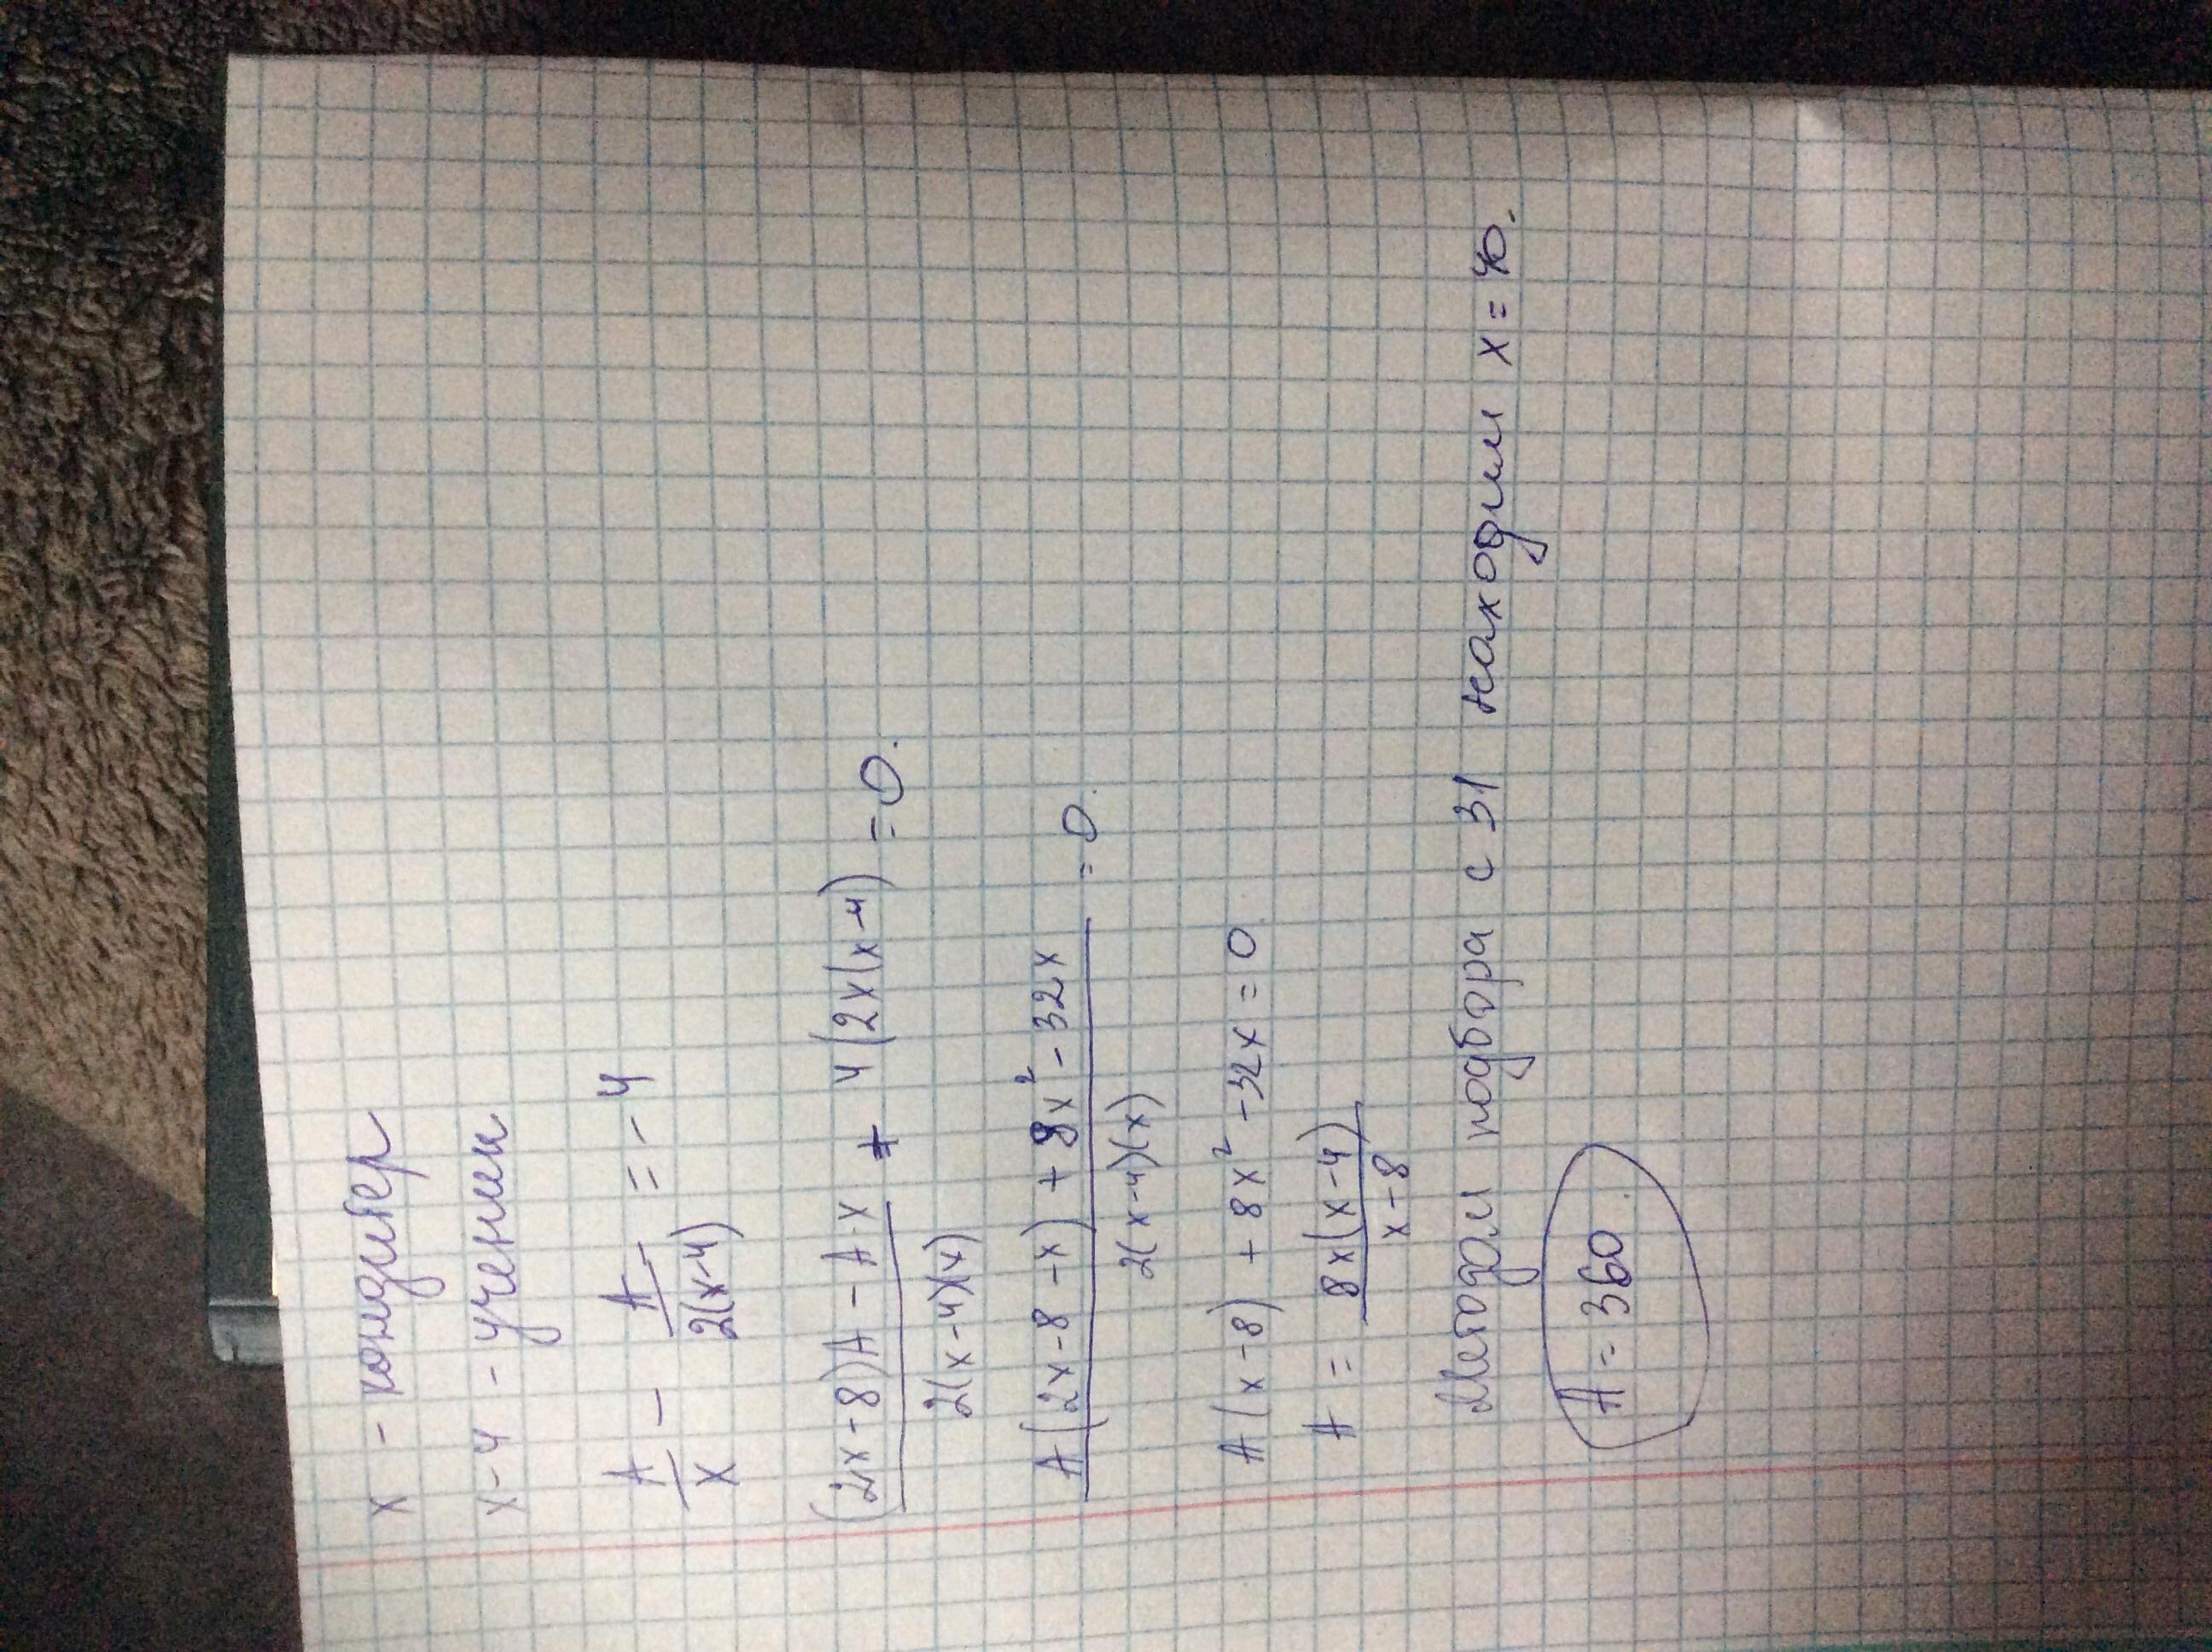 x - кондитер
x-4 - ученик
A/x - A/2(x-4) = -4
(2x-8)A - A·x / 2(x-4)(x) + 4(2x(x-4) = 0.
A(2x-8-x) + 8x² - 32x / 2(x-4)(x) = 0.
A(x-8) + 8x² - 32x = 0
A = 8x(x-4) / x-8
Методом подбора с 31 находим x = 40.
A = 360.